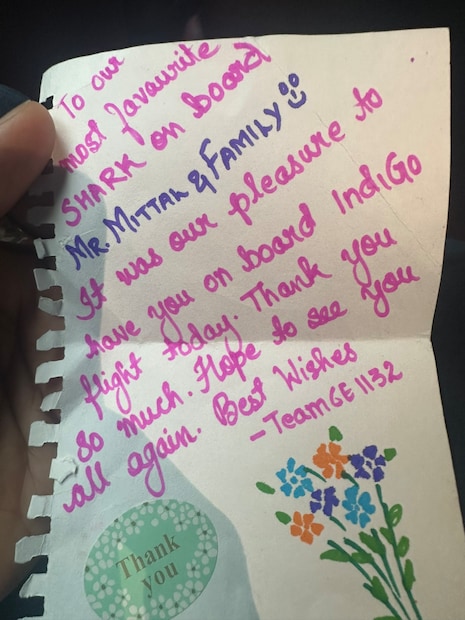 To our
most favourite
SHARK on board
MR. MITTAL & FAMILY
It was our pleasure to
have you on board IndiGo
flight today. Thank you
so much. Hope to see you
all again. Best Wishes
- Team 6E 1132
Thank
you